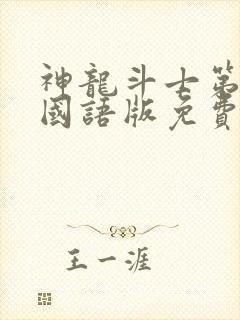 神龍斗士第
國語版免費
王一涯